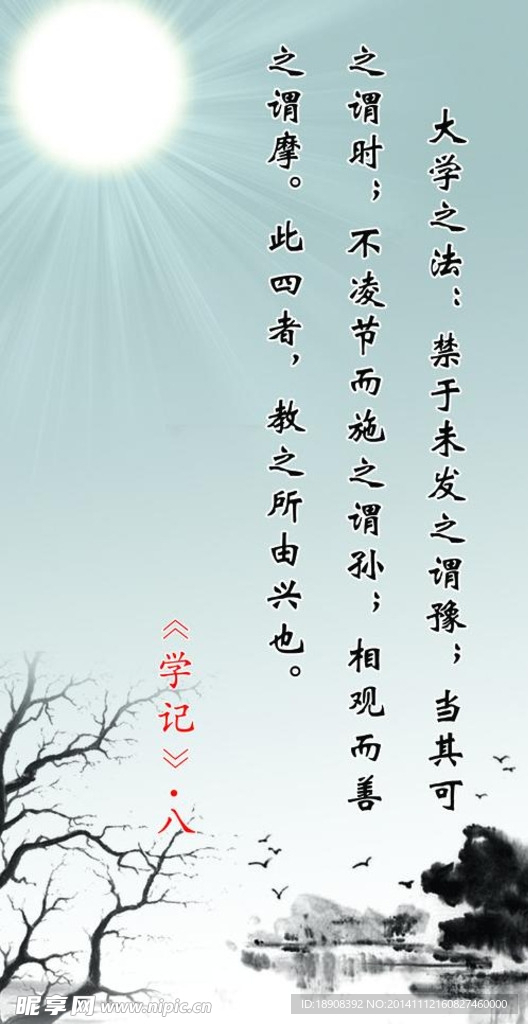 大学之法：禁于未发之谓豫；当其可
之谓时；不凌节而施之谓孙；相观而善
之谓摩。此四者，教之所由兴也。
《学记》·八
昵享网 www.nipic.cn
ID:18908392 NO:20141112160827460000